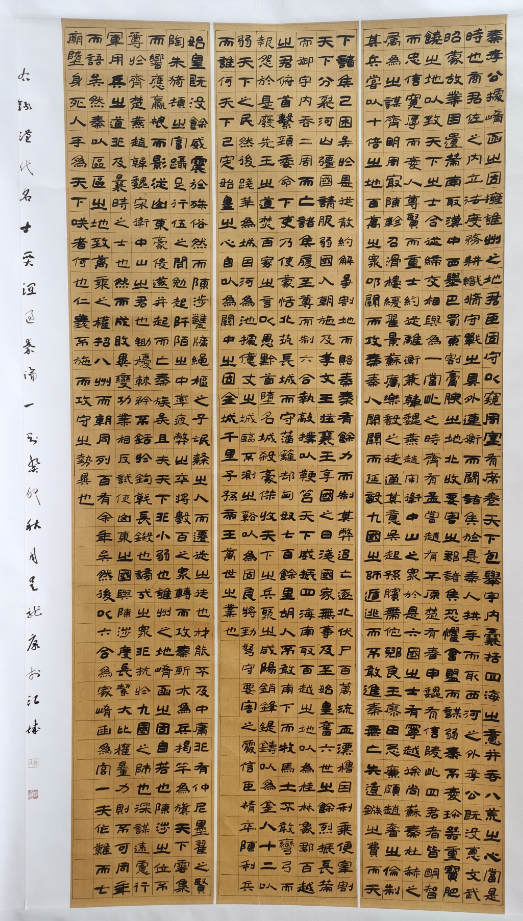 秦孝公據崤函之固擁雍州之地君臣固守以窺周室有席卷天下包舉宇內囊括四海之意并吞八荒之心當是
時也商君佐之內立法度務耕織修守戰之具外連衡而鬥諸侯於是秦人拱手而取西河之外孝公既沒惠文武
昭蒙故業因遺策南取漢中西舉巴蜀東割膏腴之地北收要害之郡諸侯恐懼會盟而謀弱秦不愛珍器重寶肥
饒之地以致天下之士合從締交相與為一當此之時齊有孟嘗趙有平原楚有春申魏有信陵此四君者皆明智
而忠信寬厚而愛人尊賢而重士約從離衡兼韓魏燕趙宋衛中山之眾於是六國之士有甯越徐尚蘇秦杜赫之
屬為之謀齊明周最陳軫召滑樓緩翟景蘇厲樂毅之徒通其意吳起孫臏帶佗倪良王廖田忌廉頗趙奢之倫制
其兵嘗以十倍之地百萬之眾叩關而攻秦秦人開關而延敵九國之師遁逃而不敢進秦無亡矢遺鏃之費而天
下諸侯已困矣於是從散約解爭割地而賂秦秦有餘力而制其弊追亡逐北伏尸百萬流血漂櫓因利乘便宰割
天下分裂河山彊國請服弱國入朝施及孝文王莊襄王享國之日淺國家無事及至始皇奮六世之餘烈振長策
而御宇內吞二周而亡諸侯履至尊而制六合執敲撲以鞭笞天下威振四海南取百越之地以為桂林象郡百越
之君俯首繫頸委命下吏乃使蒙恬北築長城而守藩籬卻匈奴七百餘里胡人不敢南下而牧馬士不敢彎弓而
報怨於是廢先王之道焚百家之言以愚黔首墮名城殺豪傑收天下之兵聚之咸陽銷鋒鍉鑄以為金人十二以
弱天下之民然後踐華為城因河為池據億丈之城臨不測之谿以為固良將勁弩守要害之處信臣精卒陳利兵
而誰何天下已定始皇之心自以為關中之固金城千里子孫帝王萬世之業也
始皇既沒餘威震於殊俗然而陳涉甕牖繩樞之子氓隸之人而遷徙之徒也材能不及中庸非有仲尼墨翟之賢
陶朱猗頓之富躡足行伍之間勉起阡陌之中率疲弊之卒將數百之眾轉而攻秦斬木為兵揭竿為旗天下雲集
而響應贏糧而影從山東豪俊遂並起而亡秦族矣且夫天下非小弱也雍州之地崤函之固自若也陳涉之位不
尊於齊楚燕趙韓魏宋衛中山之君也鋤耰棘矜不銛於鉤戟長鎩也謫戍之眾非抗於九國之師也深謀遠慮行
軍用兵之道非及曩時之士也然而成敗異變功業相反試使山東之國與陳涉度長絜大比權量力則不可同年
而語矣然秦以區區之地致萬乘之權招八州而朝同列百有餘年矣然後以六合為家崤函為宮一夫作難而七
廟墮身死人手為天下笑者何也仁義不施而攻守之勢異也
右錄漢代名士賈誼過秦論一則癸卯秋月